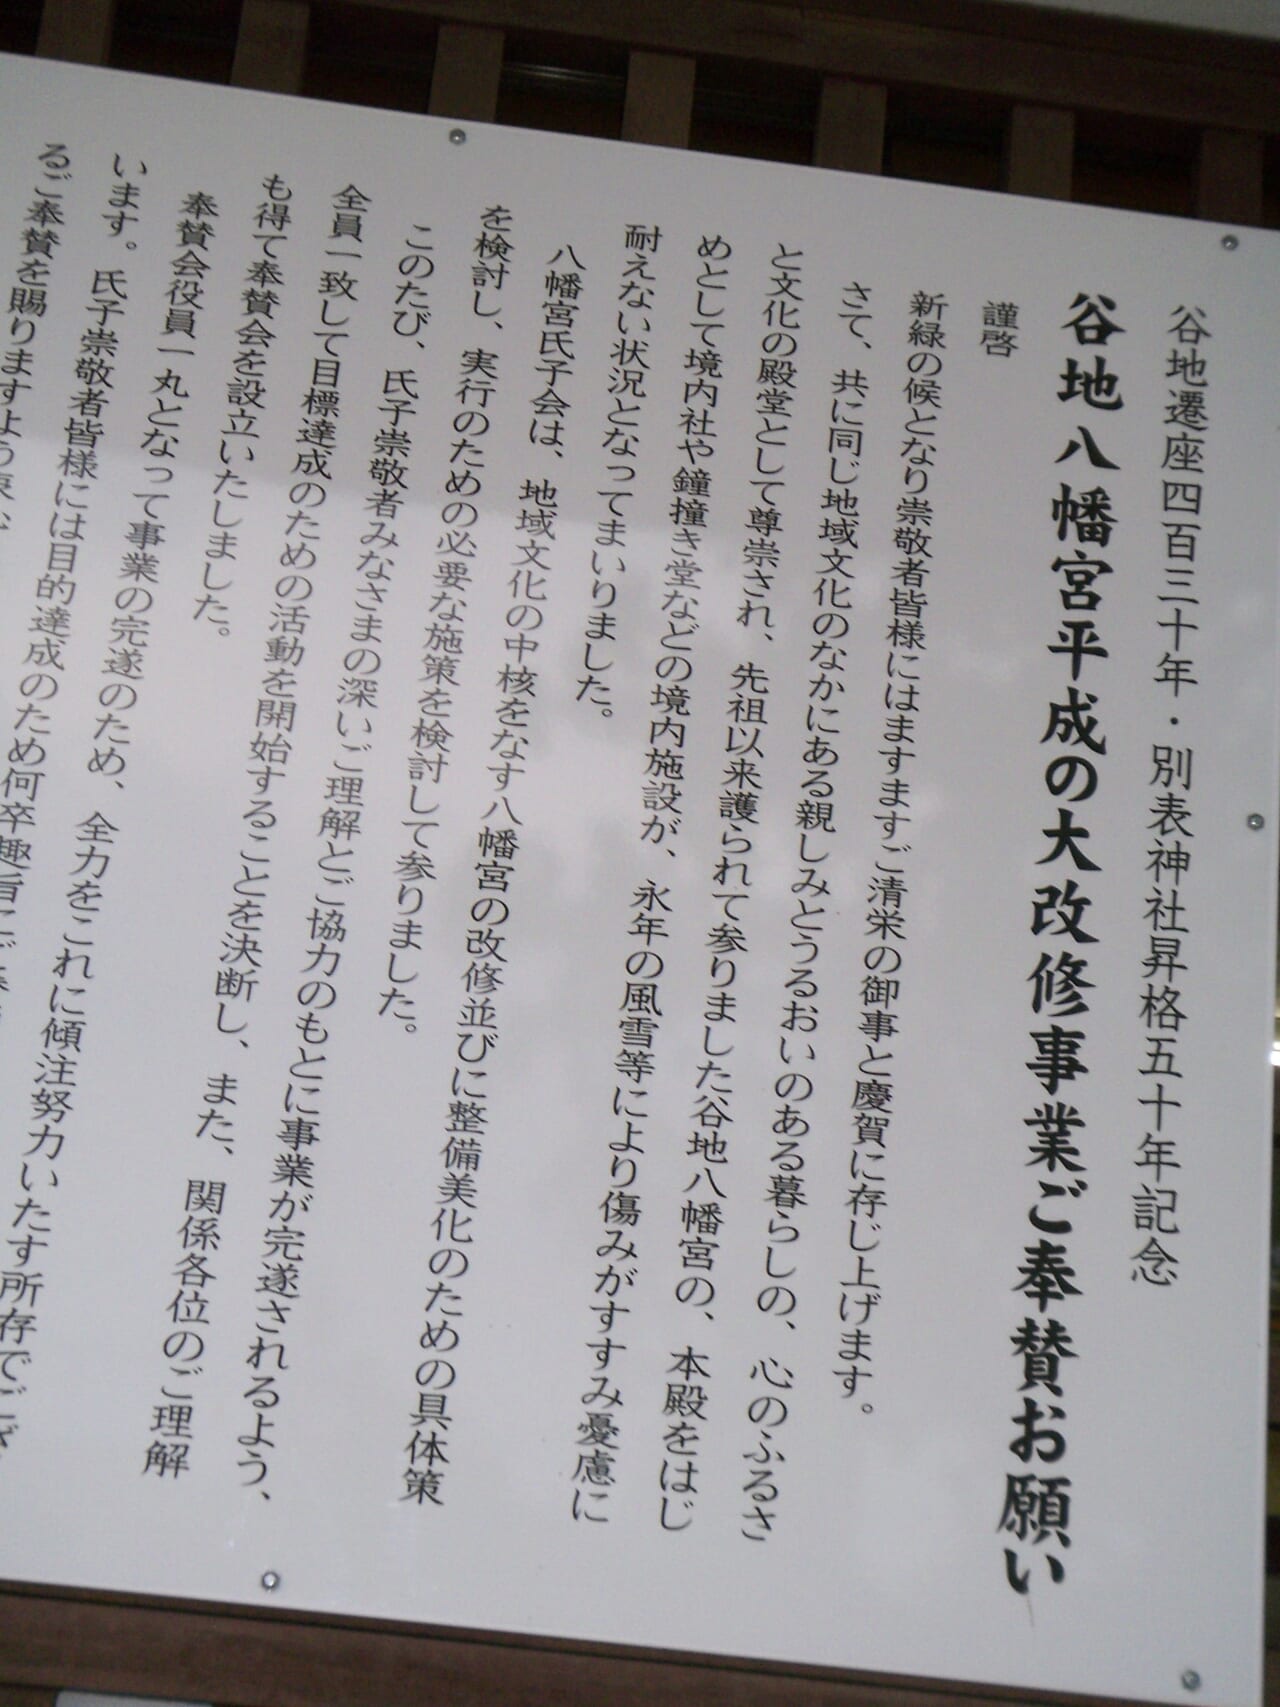 谷地遷座四百三十年・別表神社昇格五十年記念
谷地八幡宮平成の大改修事業ご奉賛お願い
謹啓
新緑の候となり崇敬者皆様にはますますご清栄の御事と慶賀に存じ上げます。
さて、共に同じ地域文化のなかにある親しみとうるおいのある暮らしの、心のふるさ
と文化の殿堂として尊崇され、先祖以来護られて参りました谷地八幡宮の、本殿をはじ
めとして境内社や鐘撞き堂などの境内施設が、永年の風雪等により傷みがすすみ憂慮に
耐えない状況となってまいりました。
八幡宮氏子会は、地域文化の中核をなす八幡宮の改修並びに整備美化のための具体策
を検討し、実行のための必要な施策を検討して参りました。
このたび、氏子崇敬者みなさまの深いご理解とご協力のもとに事業が完遂されるよう、
全員一致して目標達成のための活動を開始することを決断し、また、関係各位のご理解
も得て奉賛会を設立いたしました。
奉賛会役員一丸となって事業の完遂のため、全力をこれに傾注努力いたす所存でござ
います。氏子崇敬者皆様には目的達成のため何卒趣旨にご
るご奉賛を賜りますよう